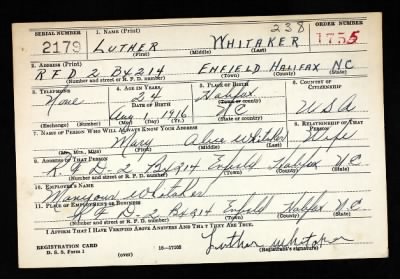 238
SERIAL NUMBER 1. NAME (Print) ORDER NUMBER
2179 LUTHER WHITAKER 1755
(First) (Middle) (Last)
2. ADDRESS (Print)
R F D 2 Bx 214 ENFIELD HALIFAX NC
(Number and street or R. F. D. number) (Town) (County) (State)
3. TELEPHONE 4. AGE IN YEARS 5. PLACE OF BIRTH 6. COUNTRY OF CITIZENSHIP
None 24 Halifax
DATE OF BIRTH (Town or county)
Aug 1916 NC USA
(Exchange) (Number) (Mo.) (Day) (Yr.) (State or country)
7. NAME OF PERSON WHO WILL ALWAYS KNOW YOUR ADDRESS 8. RELATIONSHIP OF THAT PERSON
Mary Alice Whitaker Wife
(Mr., Mrs., Miss) (First) (Middle) (Last)
9. ADDRESS OF THAT PERSON
R F D-2 Bx 214 Enfield Halifax N C
(Number and street or R. F. D. number) (Town) (County) (State)
10. EMPLOYER'S NAME
Whitaker
11. PLACE OF EMPLOYMENT OR BUSINESS
R F D-2 Bx 214 Enfield Halifax N C
(Number and street or R. F. D. number) (Town) (County) (State)
I AFFIRM THAT I HAVE VERIFIED ABOVE ANSWERS AND THAT THEY ARE TRUE.
REGISTRATION CARD Luther Whitaker
D. S. S. Form 1 (over) 16—17105 (Registrant's signature)